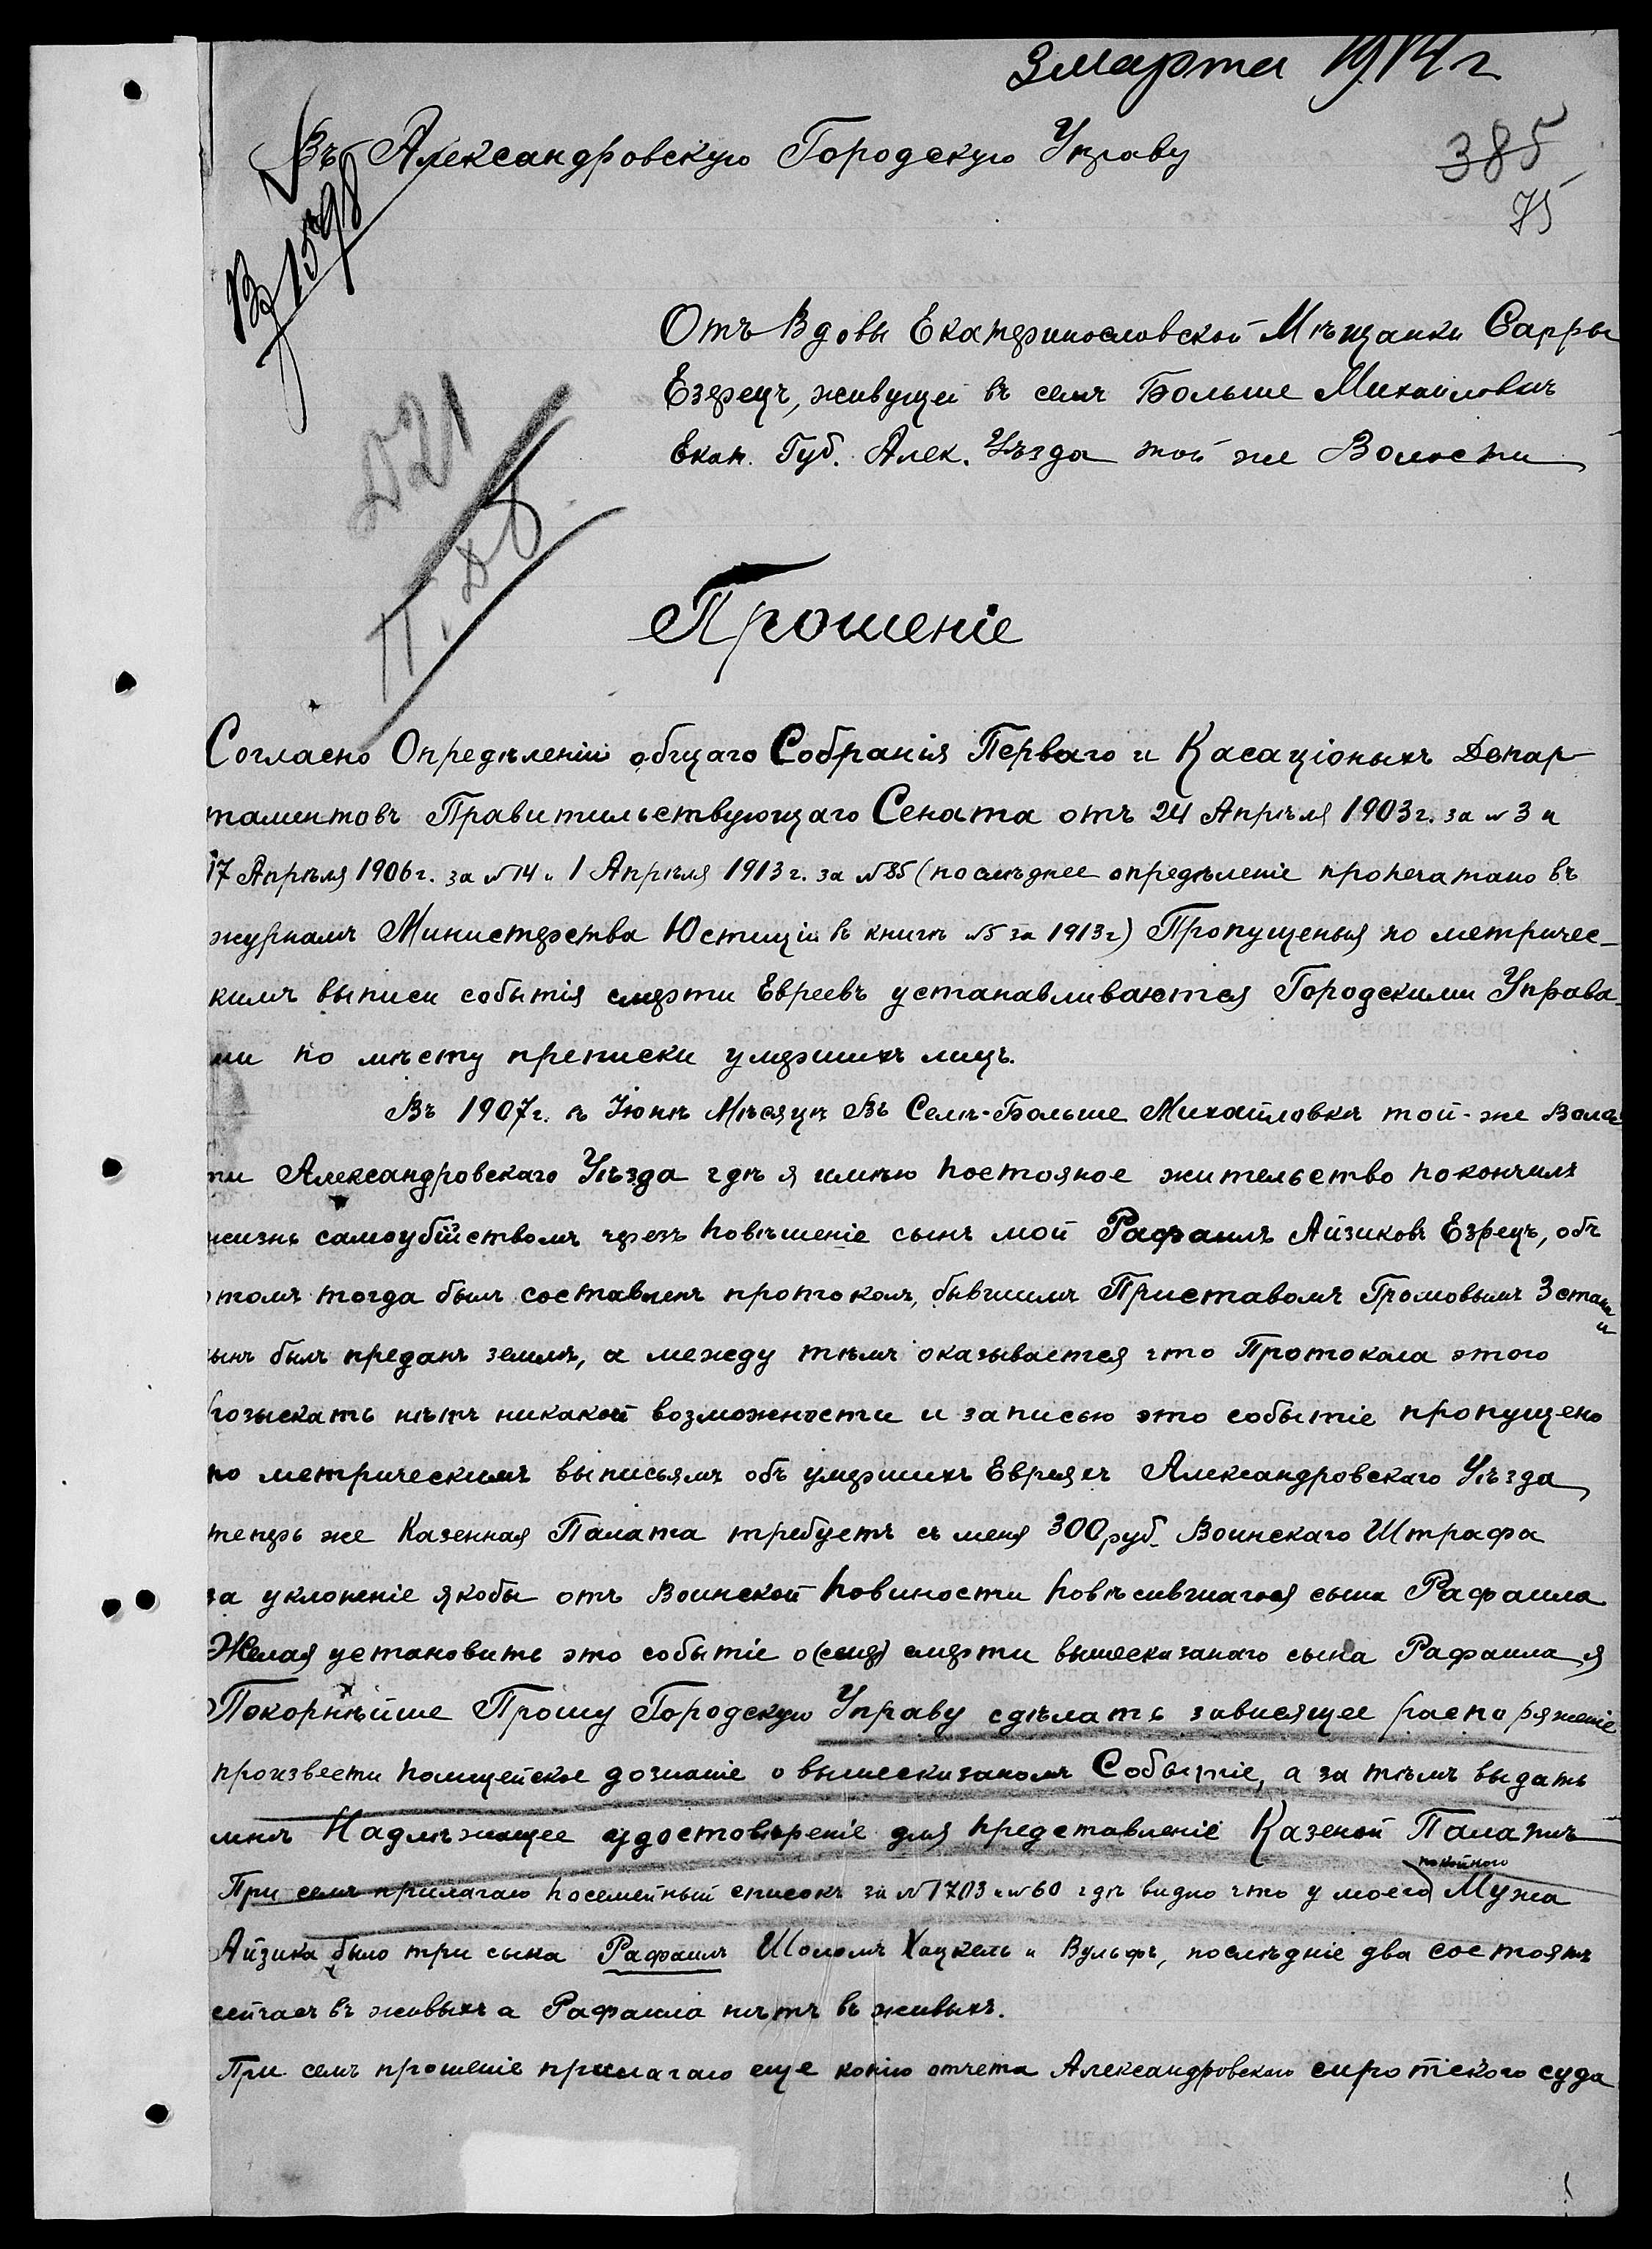 3 марта 1914 г
Въ Александровскую Городскую Управу
385
75
Вх 1598
Отъ Вдовы Екатеринословской Мѣщанки Сарры
Езрецъ, живущей въ селѣ Больше Михайловкѣ
Екат. Губ. Алек. Уѣзда той же Волости
Д 21
Прошеніе
Согласно Опредѣленій общаго Собранія Перваго и Касаціоныхъ Депар-
таментовъ Правительствующаго Сената отъ 24 Апрѣля 1903 г. за № 3 и
17 Апрѣля 1906 г. за № 14 и 1 Апрѣля 1913 г. за № 85 (послѣднее опредѣленіе пропечатано въ
журналѣ Министерства Юстиціи въ книгѣ № 5 за 1913 г) Пропущенныя по метричес-
кимъ выписи событія смерти Евреевъ устанавливаются Городскими Управа-
ми по мѣсту преписки умершихъ лицъ.
Въ 1907 г. въ Іюнѣ Мѣсяцѣ Въ Селѣ-Больше Михайловкѣ той-же Волос
ти Александровскаго Уѣзда гдѣ я имѣю постояное жительство покончилъ
жизнь самоубійствомъ через повѣшеніе сынъ мой Рафаилъ Айзиковъ Езрецъ, объ
этомъ тогда былъ составленъ протоколъ, бывшимъ Приставомъ Громовымъ 3 стана и
сынъ былъ преданъ землѣ, а между тѣмъ оказывается что Протокола этого
розыскать нѣтъ никакой возможности и записью это событіе пропущено
по метрическимъ выписьямъ объ умершихъ Евреяхъ Александровскаго Уѣзда
теперь же Казенная Палата требуетъ съ меня 300 руб. Воинскаго Штрафа
за уклоненіе якобы отъ Воинской повиности повѣсившагося сына Рафаила
Желая установить это событіе о (смер) смерти вышесказанаго сына Рафаила, я
Покорнѣйше Прошу Городскую Управу сдѣлать зависящее распоряженіе
произвести полицейское дознаніе о вышесказаномъ Событіе, а за тѣмъ выдать
мнѣ Надлѣжащее удостовѣреніе для представленіе Казеной Палатѣ
покойного
При семъ прилагаю посемейный списокъ за № 1703 и № 60 гдѣ видно что у моего Мужа
Айзика было три сына Рафаилъ Шоломъ Хацкель и Вульфъ, послѣдніе два состоятъ
сейчасъ въ живыхъ а Рафаила нѣтъ въ живыхъ.
При семъ прошеніе прилагаю еще копію отчета Александровскаго сиротскаго суда